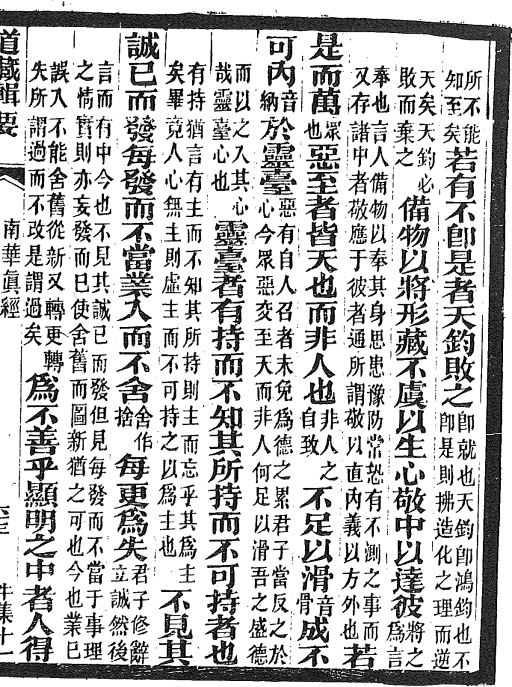 所不能
知至矣
若有不卽是者天鈞敗之
卽就也天鈞卽鴻鈞也不
卽是則拂造化之理而逆
天矣天鈞必
敗而棄之
備物以將形藏不虞以生心敬中以達彼
將之
爲言
奉也言人備物以奉其身思患豫防常恐有不測之事而
又存諸中者敬應于彼者通所謂敬以直內義以方外也
若
是而萬
眾
也
惡至者皆天也而非人也
非人之
自致
不足以滑
音
骨
成不
可內
音
納
於靈臺
惡有自人召者未免爲德之累君子當反之於
心今眾惡交至天而非人何足以滑吾之盛德
而以之入其心
哉靈臺心也
靈臺者有持而不知其所持而不可持者也
有持猶言有主而不知其所持則主而忘乎其爲主
矣畢竟人心無主則虛主而不可持之以爲主也
不見其
誠已而發每發而不當業入而不舍
舍作
捨
每更爲失
君子修辭
立誠然後
言而有中今也不見其誠已而發但見每發而不當于事理
之情實則亦妄發而已使舍舊而圖新猶之可也今也業已
誤入不能舍舊從新又轉更轉
失所謂過而不改是謂過矣
爲不善乎顯明之中者人得
道藏輯要
南華眞經
牛集十一